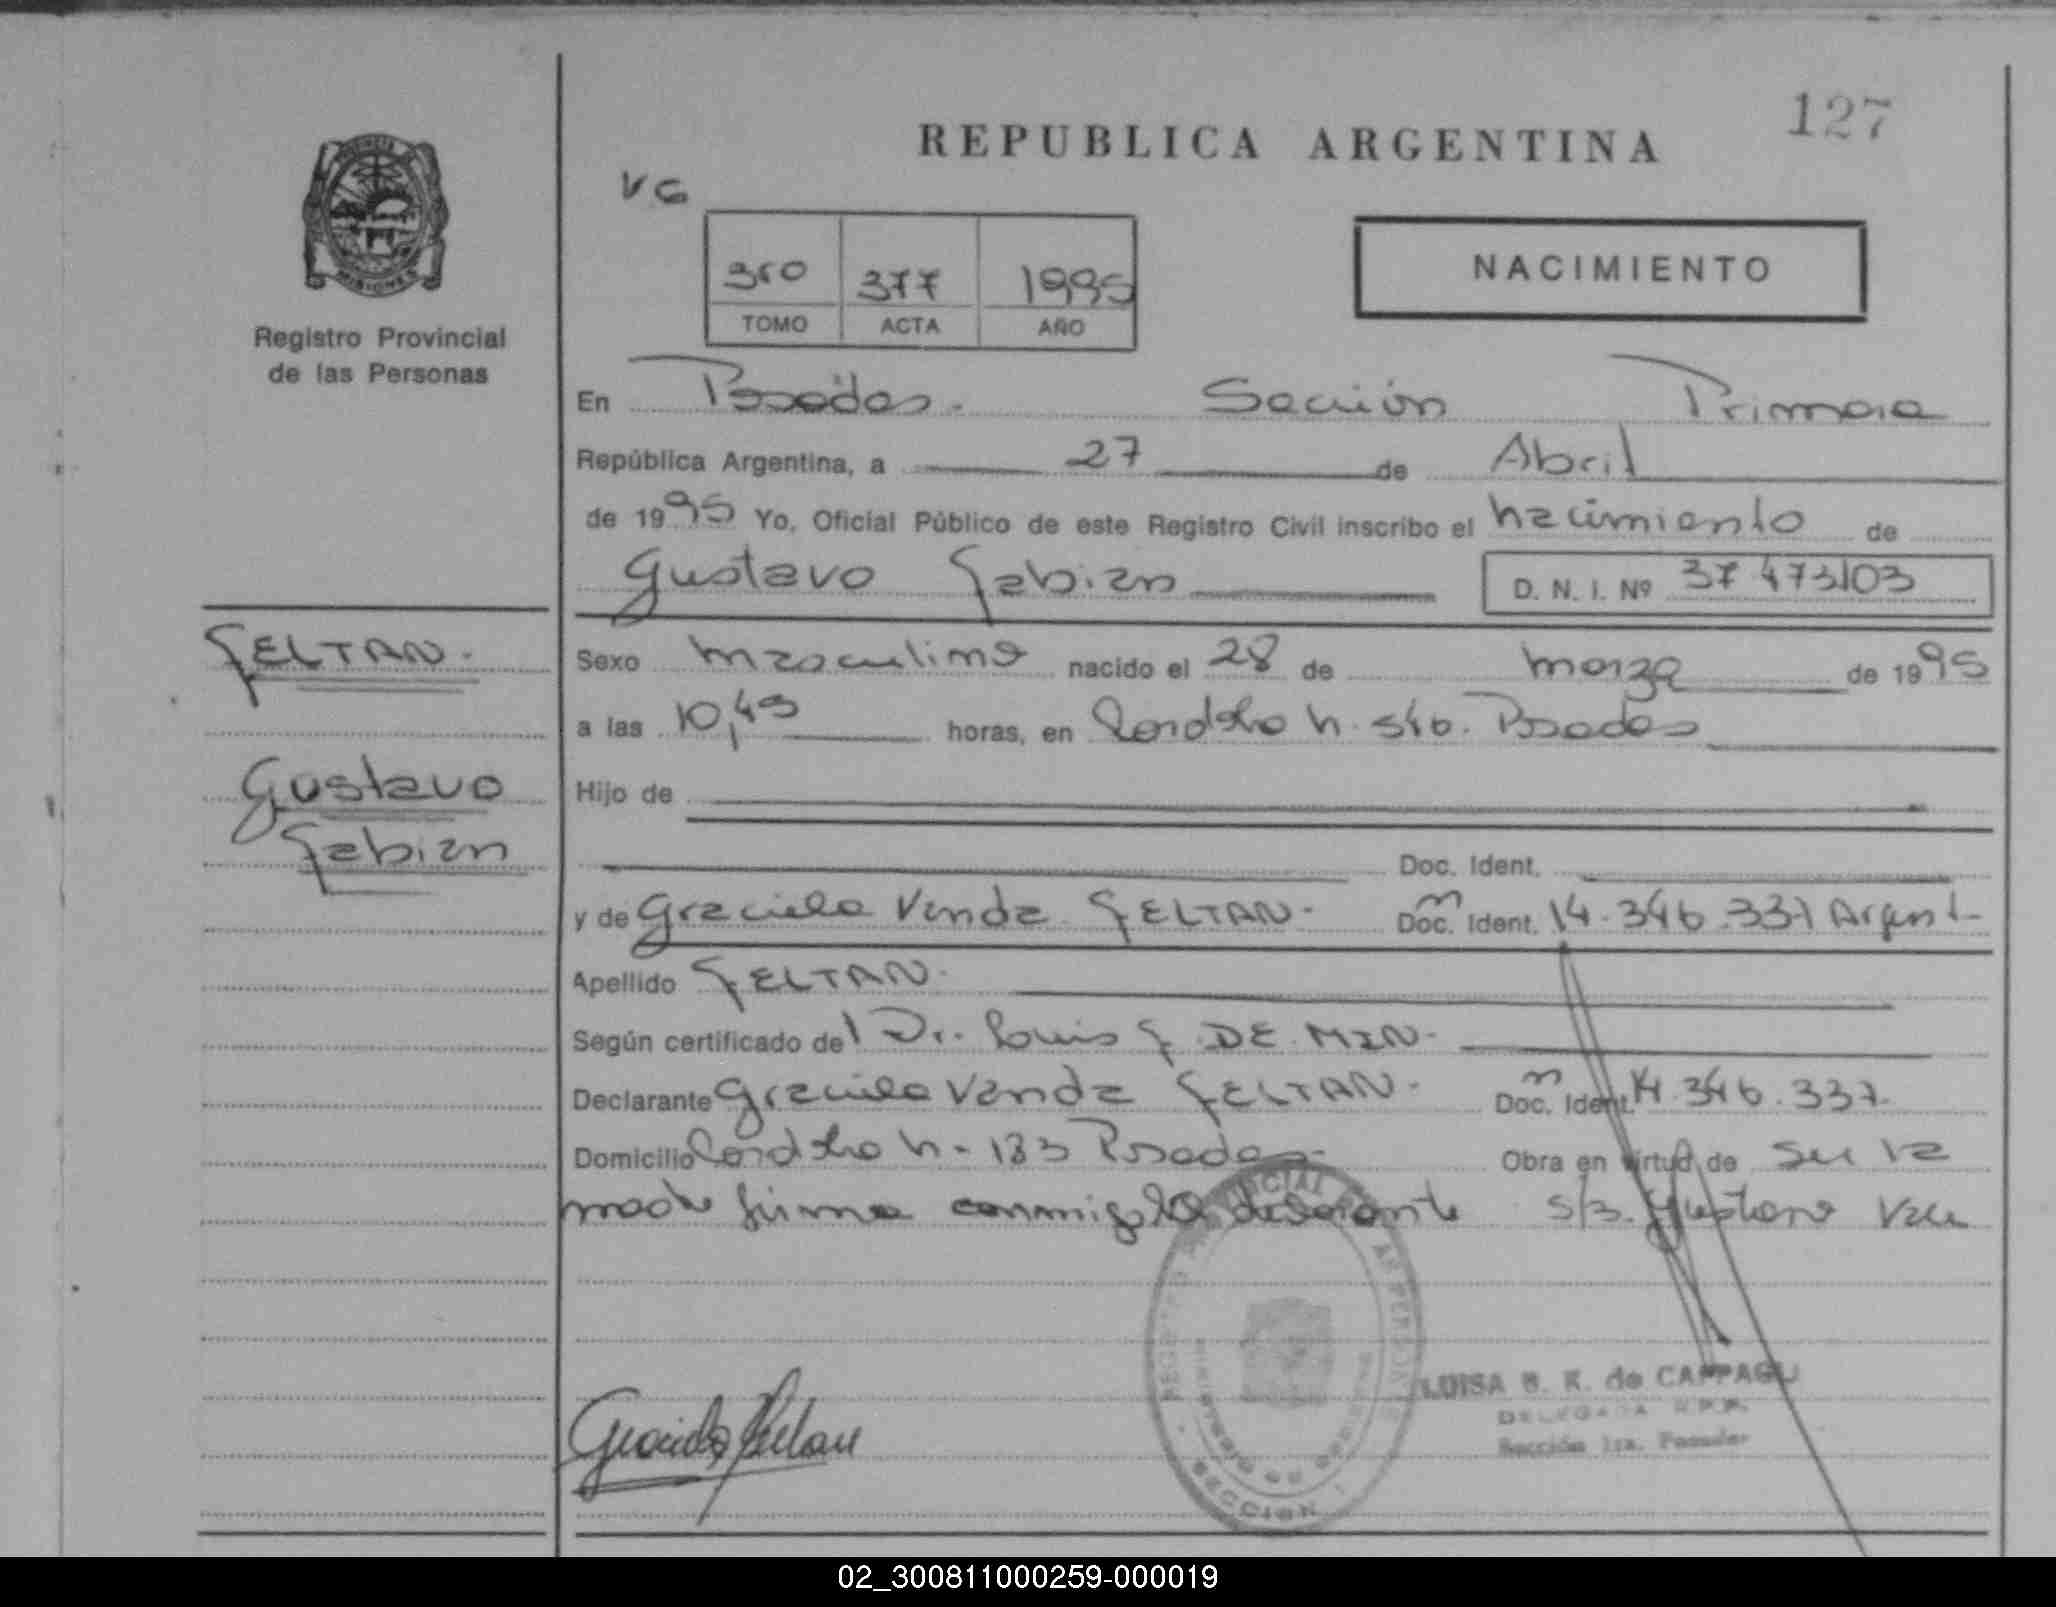 127
REPUBLICA ARGENTINA
VG
NACIMIENTO
350 377 1995
TOMO ACTA AÑO
PROVINCIA DE MISIONES
Registro Provincial
de las Personas
En Posadas. Sección Primera
República Argentina, a 27 de Abril
de 1995 Yo, Oficial Público de este Registro Civil inscribo el nacimiento de
Gustavo Fabian D. N. I. Nº 37 473103
FELTAN.
Sexo masculino nacido el 28 de marzo de 1995
a las 10,45 horas, en Posadas
Gustavo
Fabian
Hijo de
Doc. Ident.
y de Graciela Vanda FELTAN. Doc. Ident. 14.346.337 Argent.
Apellido FELTAN.
Según certificado del Dr. Luis F. DE MIN.
Declarante Graciela Vanda FELTAN. Doc. Ident. 14.346.337.
Domicilio N- 183 Posadas Obra en virtud de ser la
madre firma conmigo la declarante s/b. Gustavo
REGISTRO PROVINCIAL DE LAS PERSONAS
SECCION
LUISA B. K. de CAPPAGLI
DELEGADA R.P.P.
Sección 1ra. Posadas
02_300811000259-000019